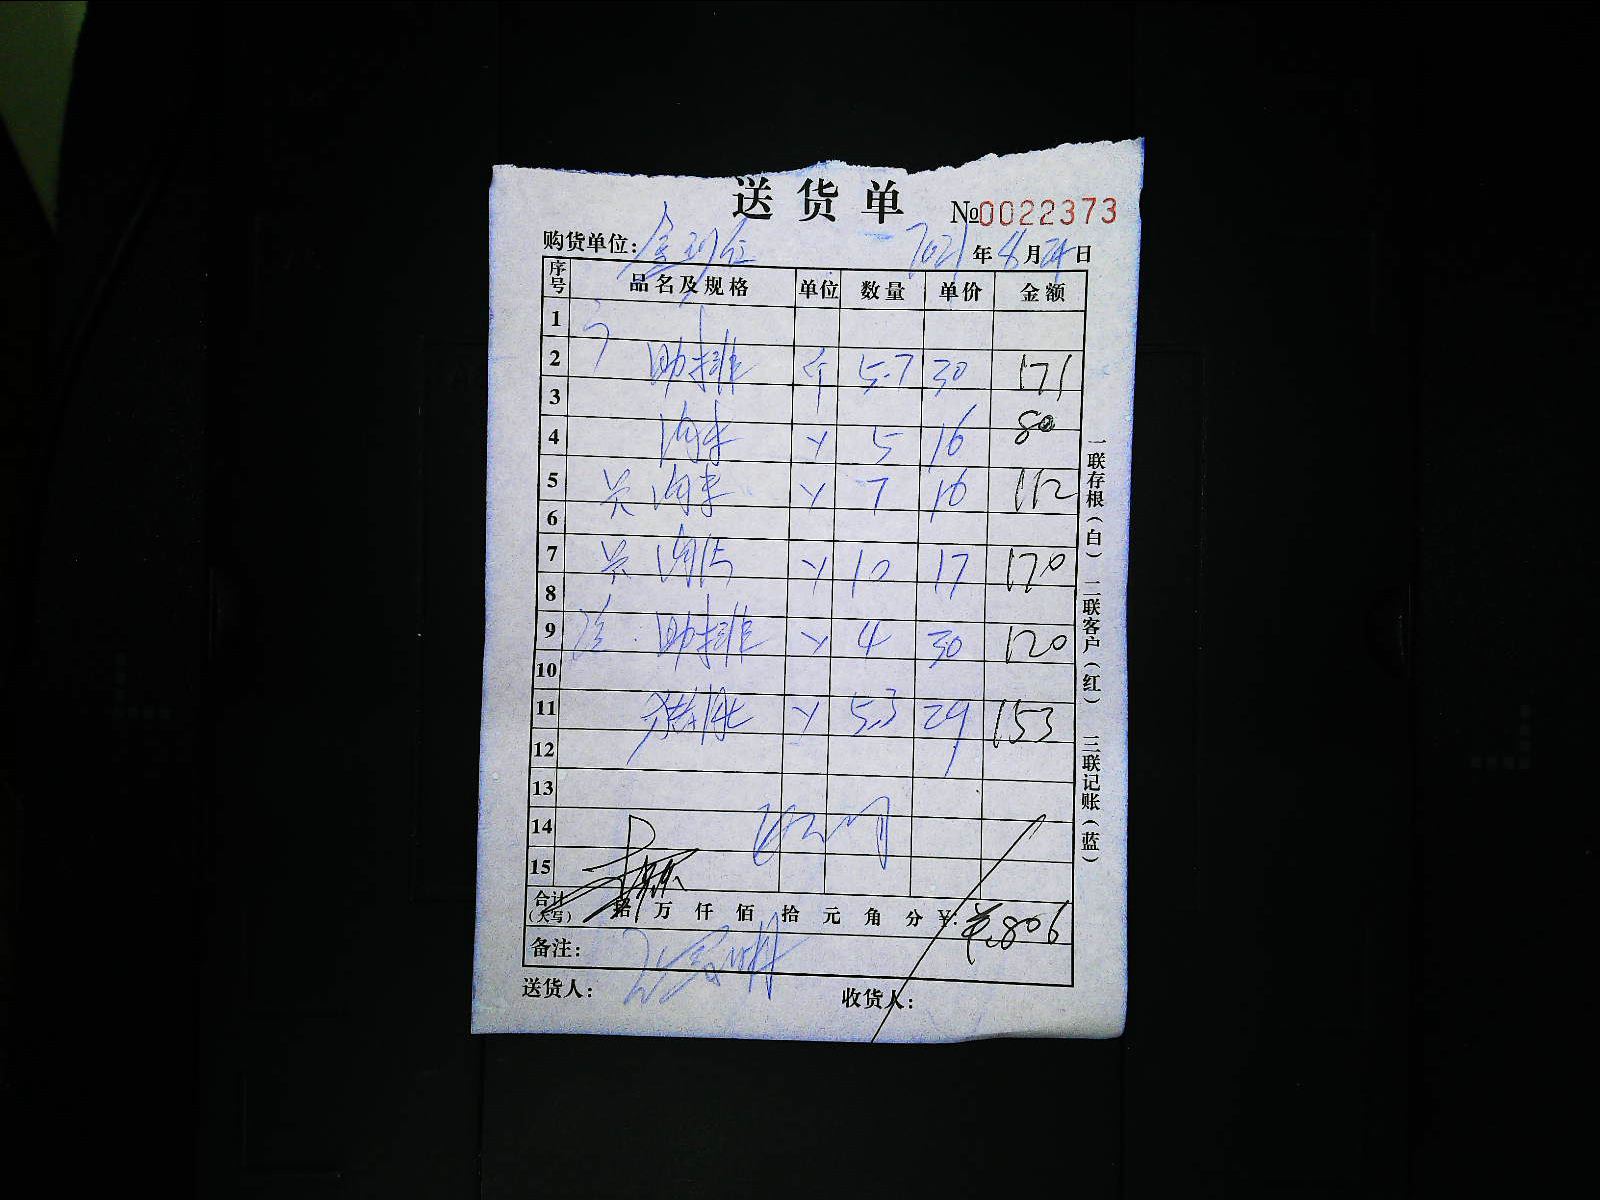 送货单 №0022373
购货单位: 2021年8月24日
序号 品名及规格 单位 数量 单价 金额
1
2 助排 斤 5.7 30 171
3
4 肉末 〃 5 16 80
5 肉末 〃 7 16 112
6
7 〃 10 17 170
8
9 助排 〃 4 30 120
10
11 猪肚 〃 5.3 29 153
12
13
14
15
合计(大写) 拾 万 仟 佰 拾 元 角 分 ¥: 806
备注:
送货人: 收货人:
一联存根(白) 二联客户(红) 三联记账(蓝)